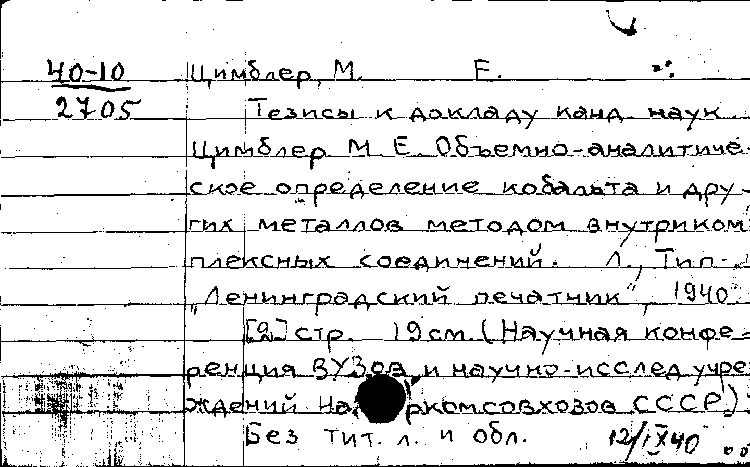 40-10 Цимблер, М. Е.
2705 Тезисы к докладу канд. наук
Цимблер М. Е. Объемно-аналитиче-
ское определение кобальта и дру-
гих металлов методом внутриком
плексных соединений. Л., Тип.
„Ленинградский печатник", 1940.
[2] стр. 19 см. (Научная конфе-
ренция ВУЗов и научно-исслед. учре
ждений На ркомсовхозов СССР).
Без тит. л. и обл. 12/IX 40